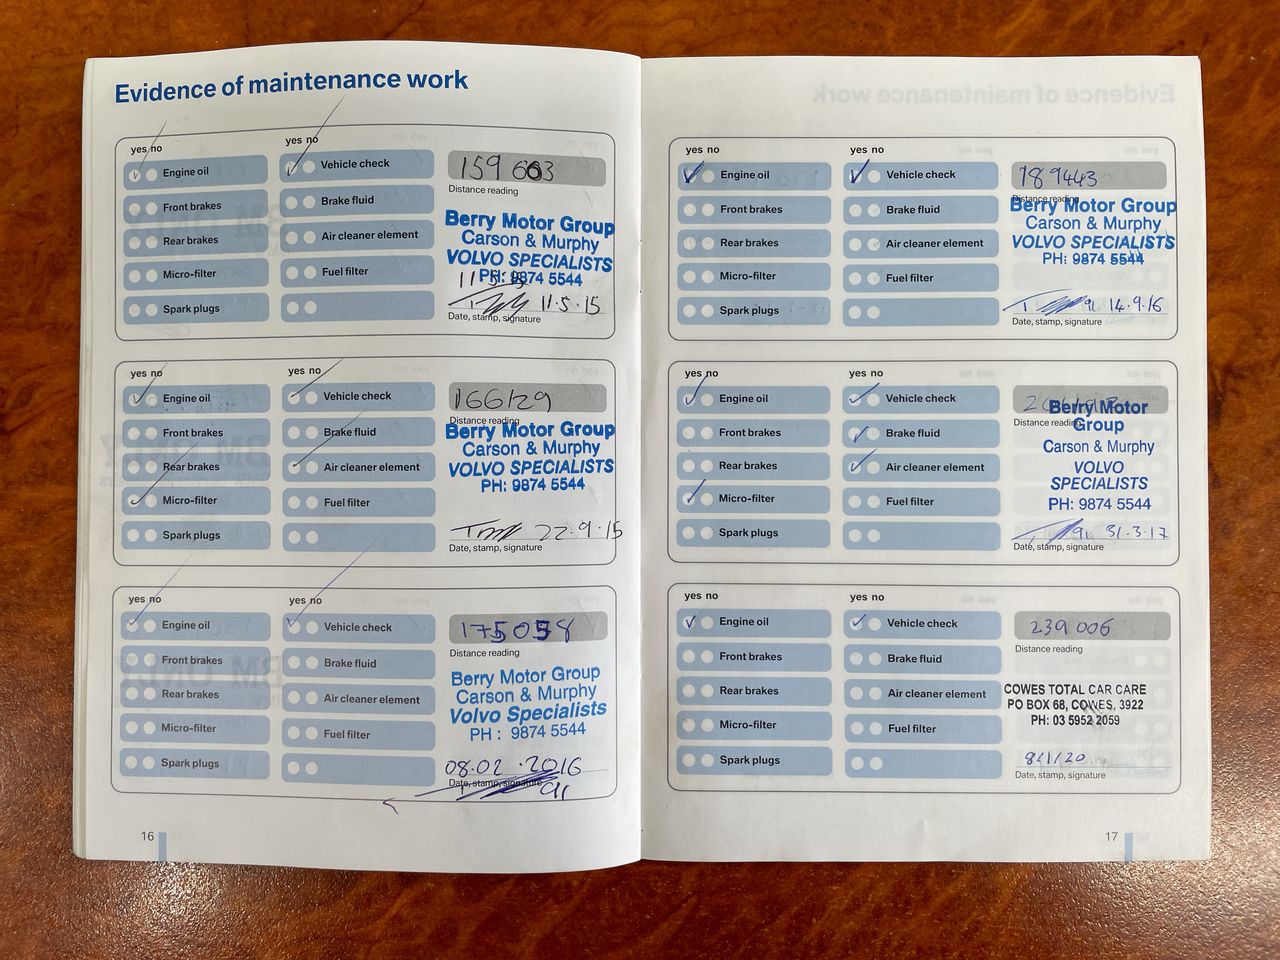 Evidence of maintenance work
yes no
yes no
Engine oil
Vehicle check
Front brakes
Brake fluid
Rear brakes
Air cleaner element
Micro-filter
Fuel filter
Spark plugs
159 603
Distance reading
Berry Motor Group
Carson & Murphy
VOLVO SPECIALISTS
PH: 9874 5544
11.5.15
Date, stamp, signature
yes no
yes no
Engine oil
Vehicle check
Front brakes
Brake fluid
Rear brakes
Air cleaner element
Micro-filter
Fuel filter
Spark plugs
166129
Distance reading
Berry Motor Group
Carson & Murphy
VOLVO SPECIALISTS
PH: 9874 5544
22.9.15
Date, stamp, signature
yes no
yes no
Engine oil
Vehicle check
Front brakes
Brake fluid
Rear brakes
Air cleaner element
Micro-filter
Fuel filter
Spark plugs
175058
Distance reading
Berry Motor Group
Carson & Murphy
Volvo Specialists
PH : 9874 5544
08.02.2016
Date, stamp, signature
16
yes no
yes no
Engine oil
Vehicle check
Front brakes
Brake fluid
Rear brakes
Air cleaner element
Micro-filter
Fuel filter
Spark plugs
189443
Distance reading
Berry Motor Group
Carson & Murphy
VOLVO SPECIALISTS
PH: 9874 5544
14.9.16
Date, stamp, signature
yes no
yes no
Engine oil
Vehicle check
Front brakes
Brake fluid
Rear brakes
Air cleaner element
Micro-filter
Fuel filter
Spark plugs
Distance reading
Berry Motor
Group
Carson & Murphy
VOLVO
SPECIALISTS
PH: 9874 5544
31.3.17
Date, stamp, signature
yes no
yes no
Engine oil
Vehicle check
Front brakes
Brake fluid
Rear brakes
Air cleaner element
Micro-filter
Fuel filter
Spark plugs
239 006
Distance reading
COWES TOTAL CAR CARE
PO BOX 68, COWES, 3922
PH: 03 5952 2059
8/1/20
Date, stamp, signature
17